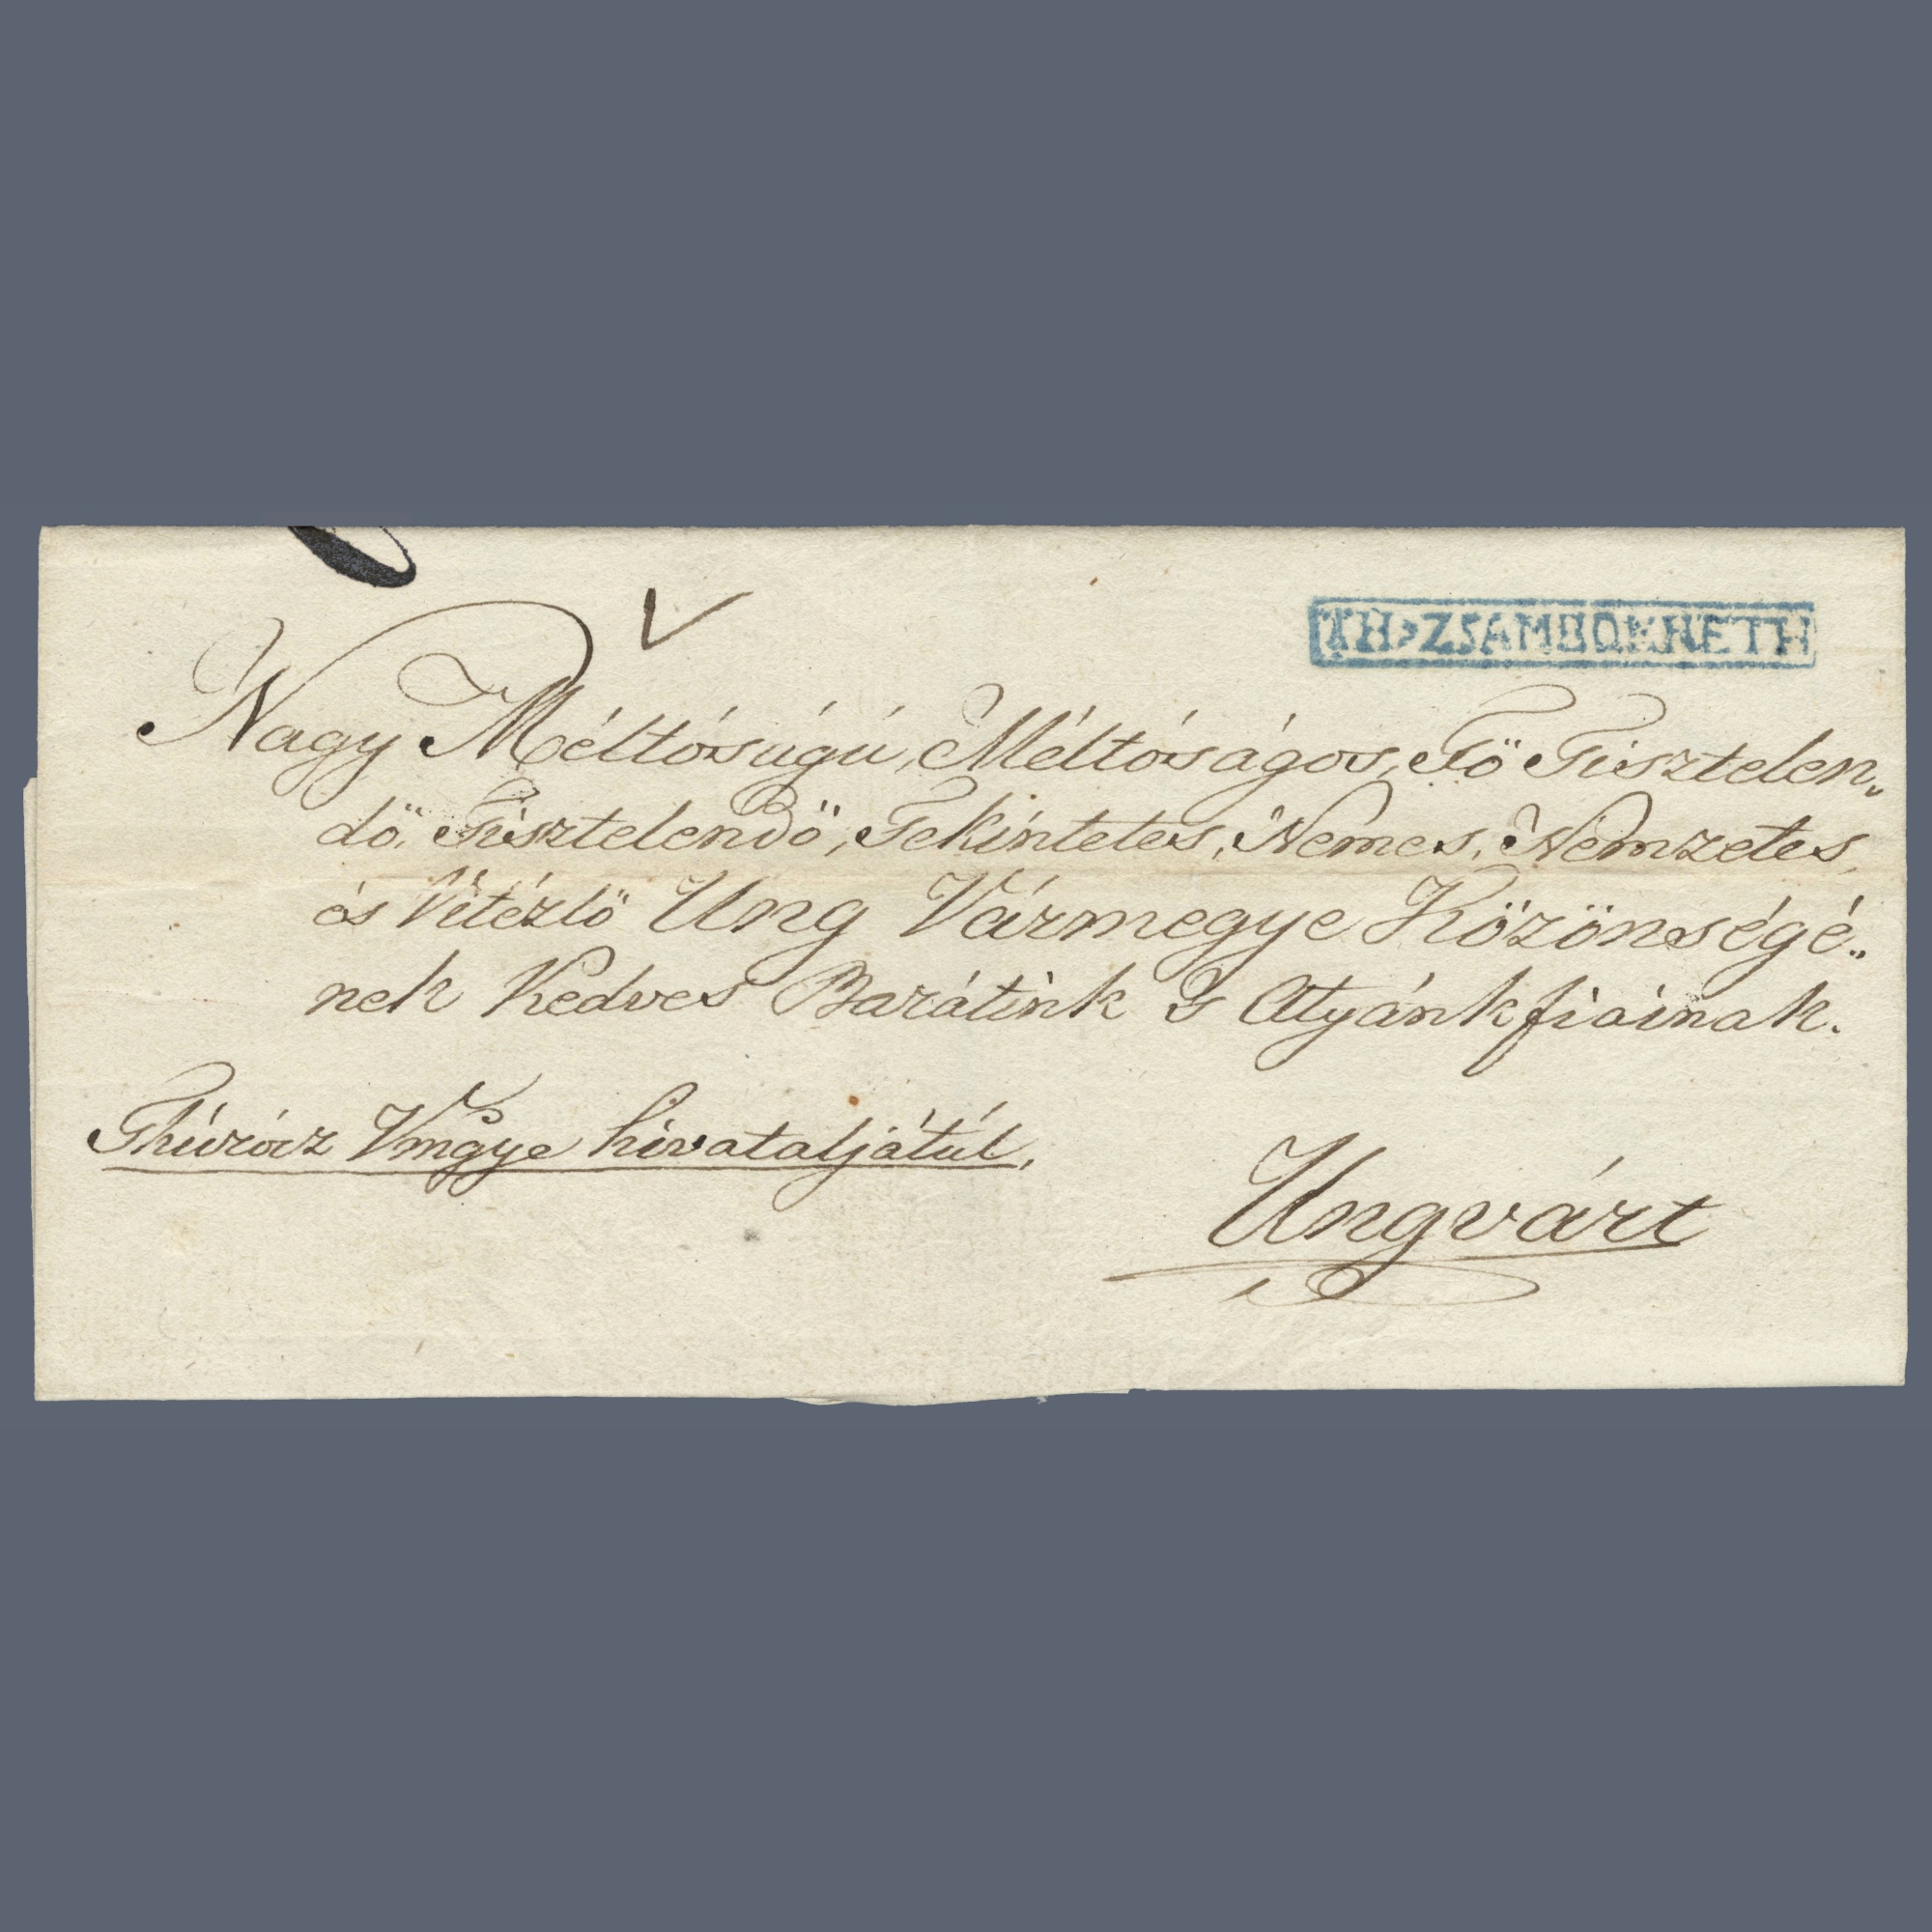 TH:ZSAMBOKRETH
Nagy Méltóságú, Méltóságos, Fö Tisztelen„
dö, Tisztelendö, Tekintetes, Nemes, Nemzetes,
és Vitézlö Ung Vármegye Közönségé„
nek Kedves Barátink 's Atyánkfiainak.
Thúrócz Vmgye hivataljátúl,
Ungvárt